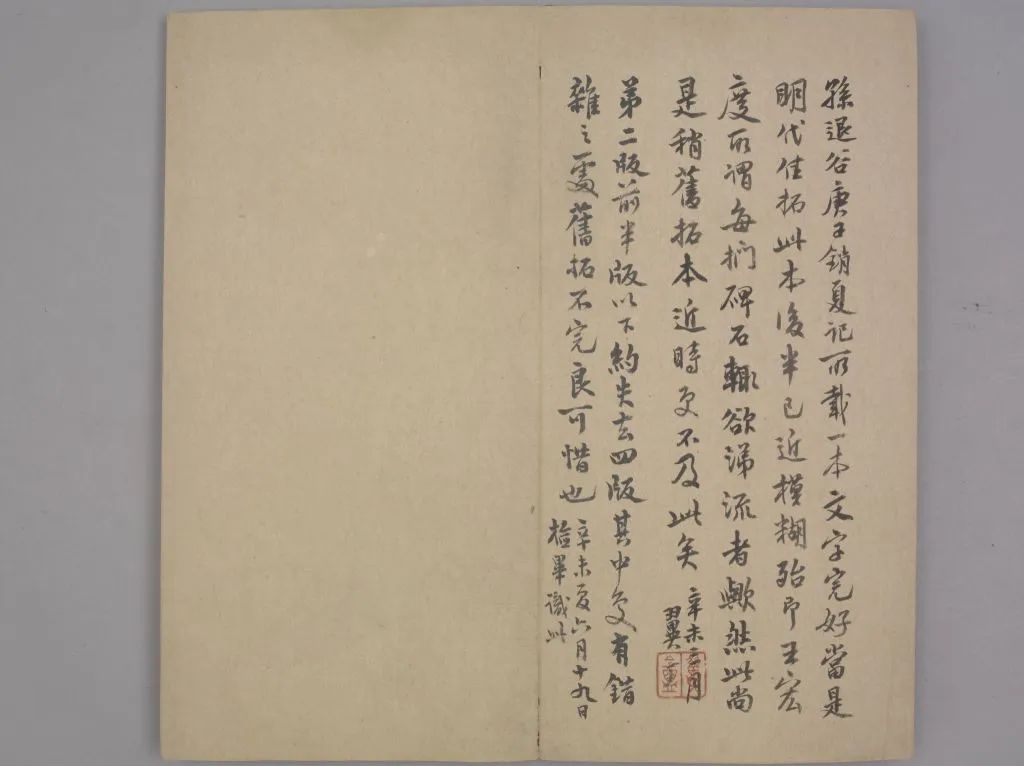 孫退谷庚子銷夏記所載一本文字完好當是
明代佳拓此本後半已近模糊殆即王宏
度所謂每捫碑石輒欲涕流者歟然此尚
是稍舊拓本近時更不及此矣
辛未五月
翼
第二版前半版以下約失去四版其中更有錯
雜之處舊拓不完良可惜也
辛未夏六月十九日
檢畢識此